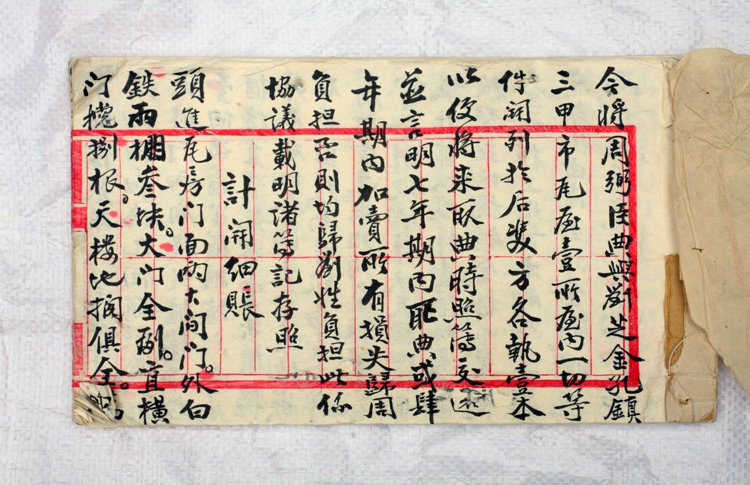 今将周弼臣典與劉芝金孔鎮
三甲市瓦屋壹所屋内一切等
件開列於后双方各執壹本
以便將来取典時照簿交还
並言明七年期内取典或肆
年期内加賣所有損失歸周
負担否則均歸劉姓負担此係
協議載明諸簿記存照
計開细賬
頭進瓦房门面兩大间门外白
鉄雨棚叁块。大门全副。直横
门櫈捌根。天楼地摑俱全